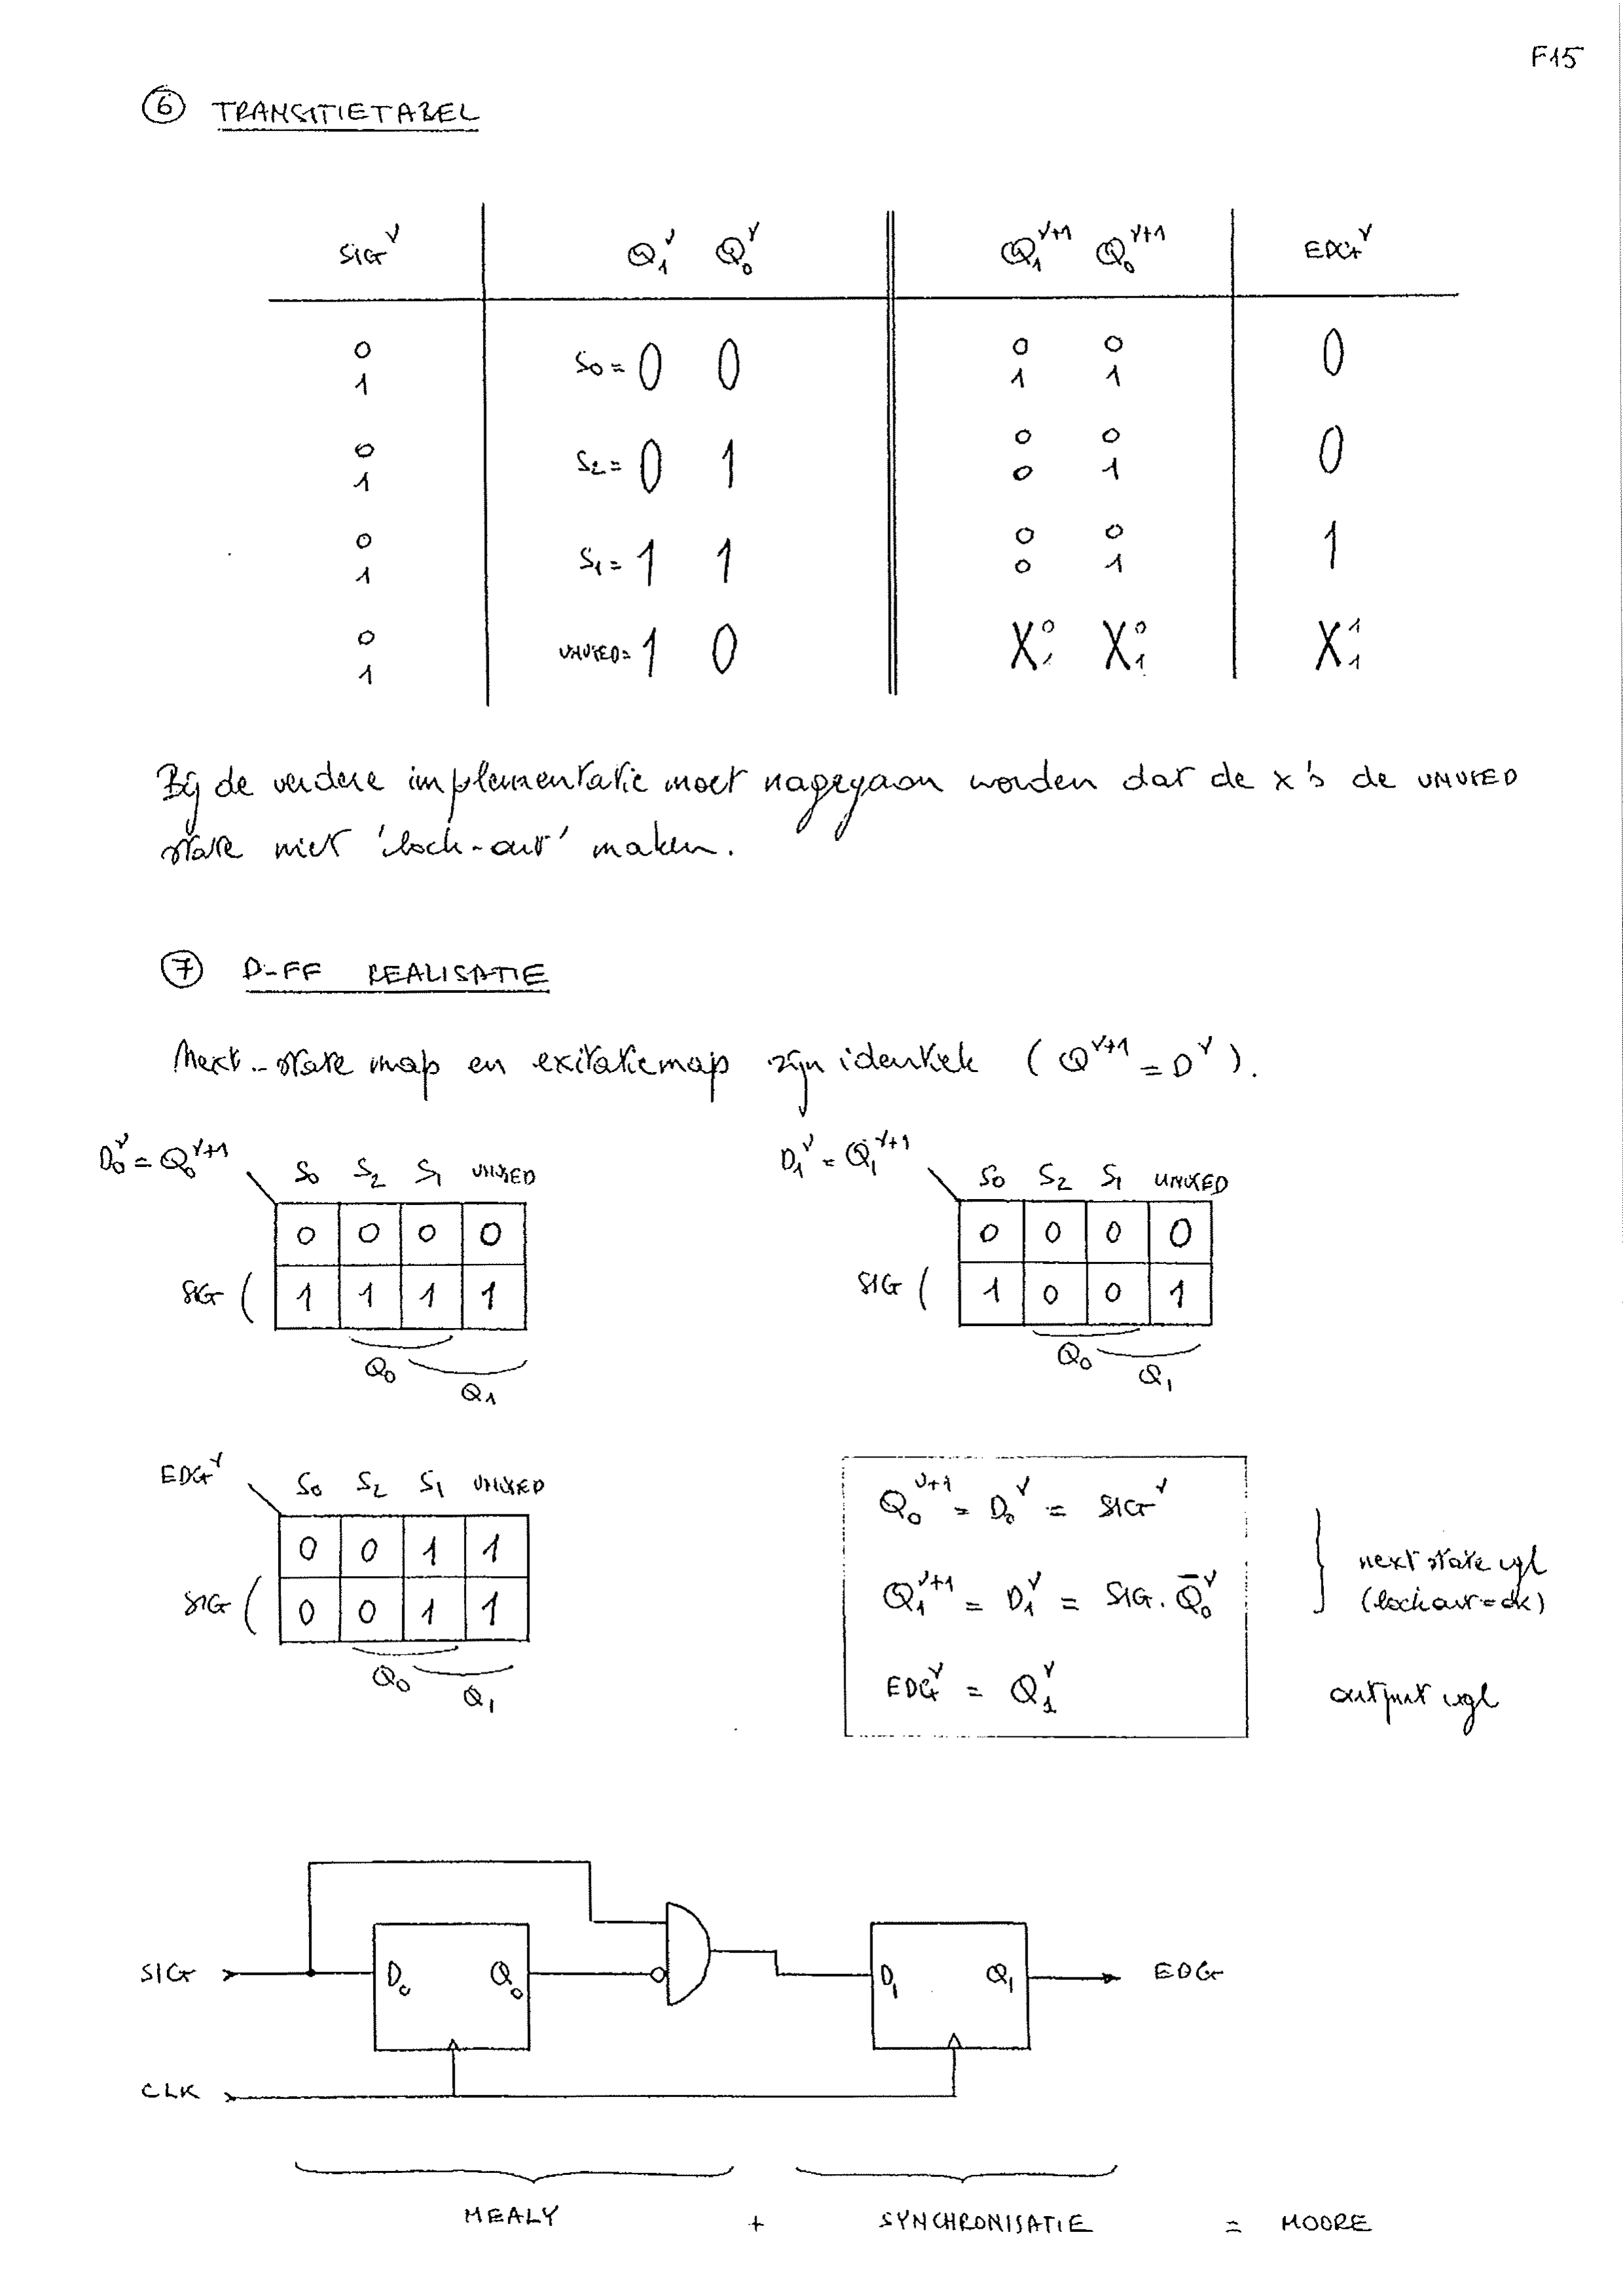 F15
⑥ TRANSITIETABEL
SIG^ν Q₁^ν Q₀^ν Q₁^ν+1 Q₀^ν+1 EDG^ν
0 0 0
1 S0 = 0 0 1 1 0
0 0 0
1 S2 = 0 1 0 1 0
0 0 0
1 S1 = 1 1 0 1 1
0 0 0 1
1 UNUSED = 1 0 X 1 X 1 X 1
Bij de verdere implementatie moet nagegaan worden dat de x's de UNUSED
state niet 'lock-out' maken.
⑦ D-FF REALISATIE
Next-state map en exitatiemap zijn identiek (Q^ν+1 = D^ν).
D₀^ν = Q₀^ν+1 S0 S2 S1 UNUSED
0 0 0 0
SIG ( 1 1 1 1
Q₀
Q₁
D₁^ν = Q₁^ν+1 S0 S2 S1 UNUSED
0 0 0 0
SIG ( 1 0 0 1
Q₀
Q₁
EDG^ν S0 S2 S1 UNUSED
0 0 1 1
SIG ( 0 0 1 1
Q₀
Q₁
Q₀^ν+1 = D₀^ν = SIG^ν
Q₁^ν+1 = D₁^ν = SIG . Q̄₀^ν
next state vgl
(lockout = ok)
EDG^ν = Q₁^ν output vgl
SIG D₀ Q₀ D₁ Q₁ EDG
CLK
MEALY + SYNCHRONISATIE = MOORE